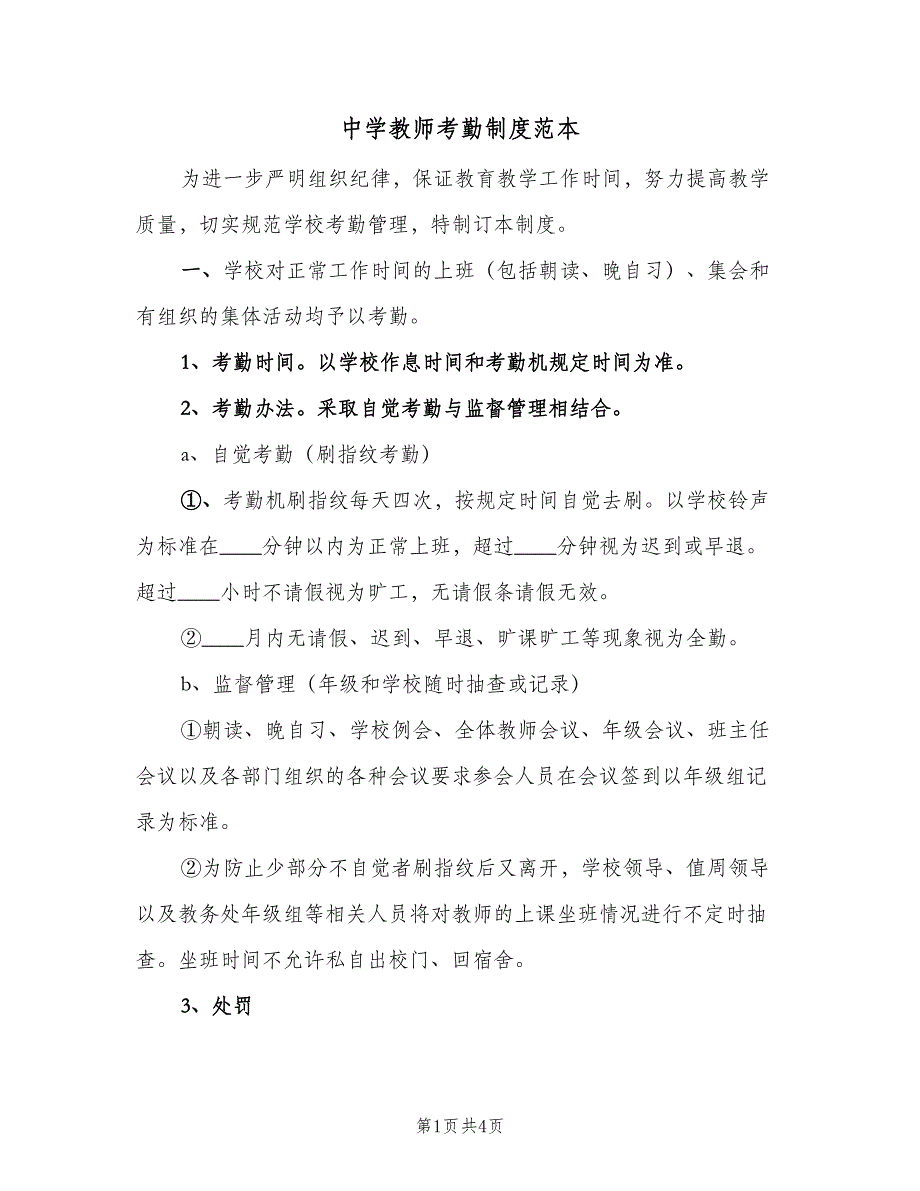 中学教师考勤制度范本
为进一步严明组织纪律，保证教育教学工作时间，努力提高教学
质量，切实规范学校考勤管理，特制订本制度。
一、学校对正常工作时间的上班（包括朝读、晚自习）、集会和
有组织的集体活动均予以考勤。
1、考勤时间。以学校作息时间和考勤机规定时间为准。
2、考勤办法。采取自觉考勤与监督管理相结合。
a、自觉考勤（刷指纹考勤）
①、考勤机刷指纹每天四次，按规定时间自觉去刷。以学校铃声
为标准在____分钟以内为正常上班，超过____分钟视为迟到或早退。
超过____小时不请假视为旷工，无请假条请假无效。
②____月内无请假、迟到、早退、旷课旷工等现象视为全勤。
b、监督管理（年级和学校随时抽查或记录）
①朝读、晚自习、学校例会、全体教师会议、年级会议、班主任
会议以及各部门组织的各种会议要求参会人员在会议签到以年级组记
录为标准。
②为防止少部分不自觉者刷指纹后又离开，学校领导、值周领导
以及教务处年级组等相关人员将对教师的上课坐班情况进行不定时抽
查。坐班时间不允许私自出校门、回宿舍。
3、处罚
第1页共4页